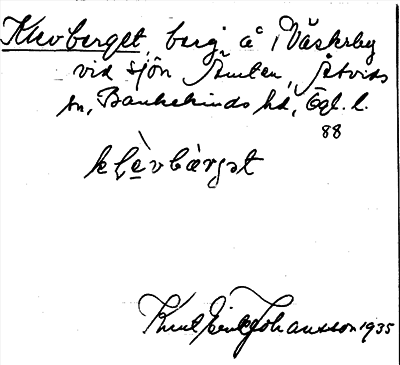 Klevberget, berg, å i Väskeby
vid sjön Ämten, Åtvids
sn, Bankekinds hd, Ögl. l.
88
klèvbærgət
Knut Erik Johansson 1935